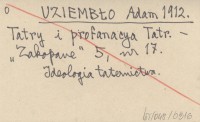 UZIEMBŁO Adam 1912.
Tatry i profanacya Tatr. –
„Zakopane" 5, nr 17.
Ideologia taternictwa.